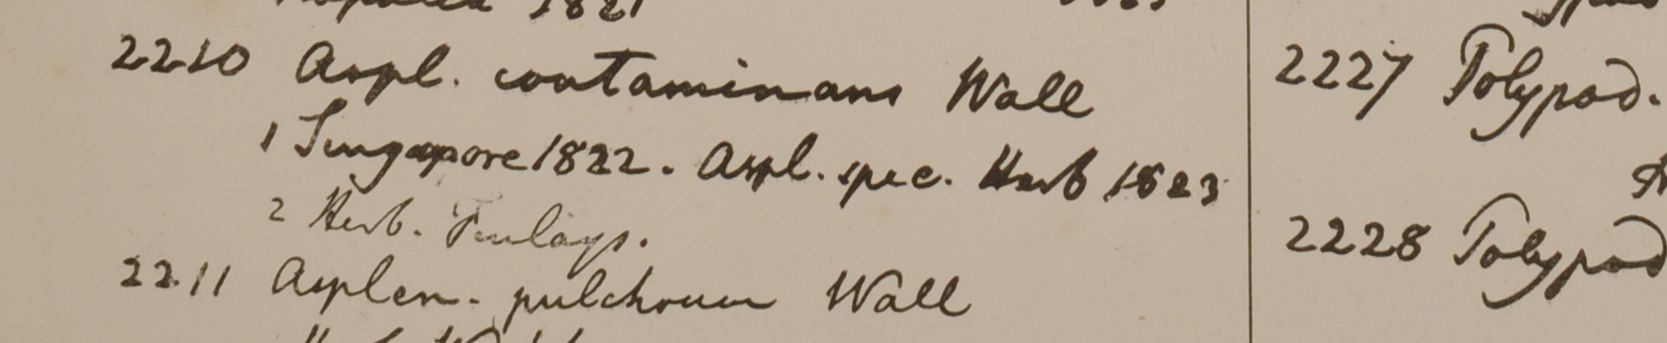 1821
2210 Aspl. contaminans Wall
1 Singapore 1822. Aspl. spec. Herb 1823
2 Herb. Finlays.
2211 Asplen. pulchrum Wall
2227 Polypod.
2228 Polypod